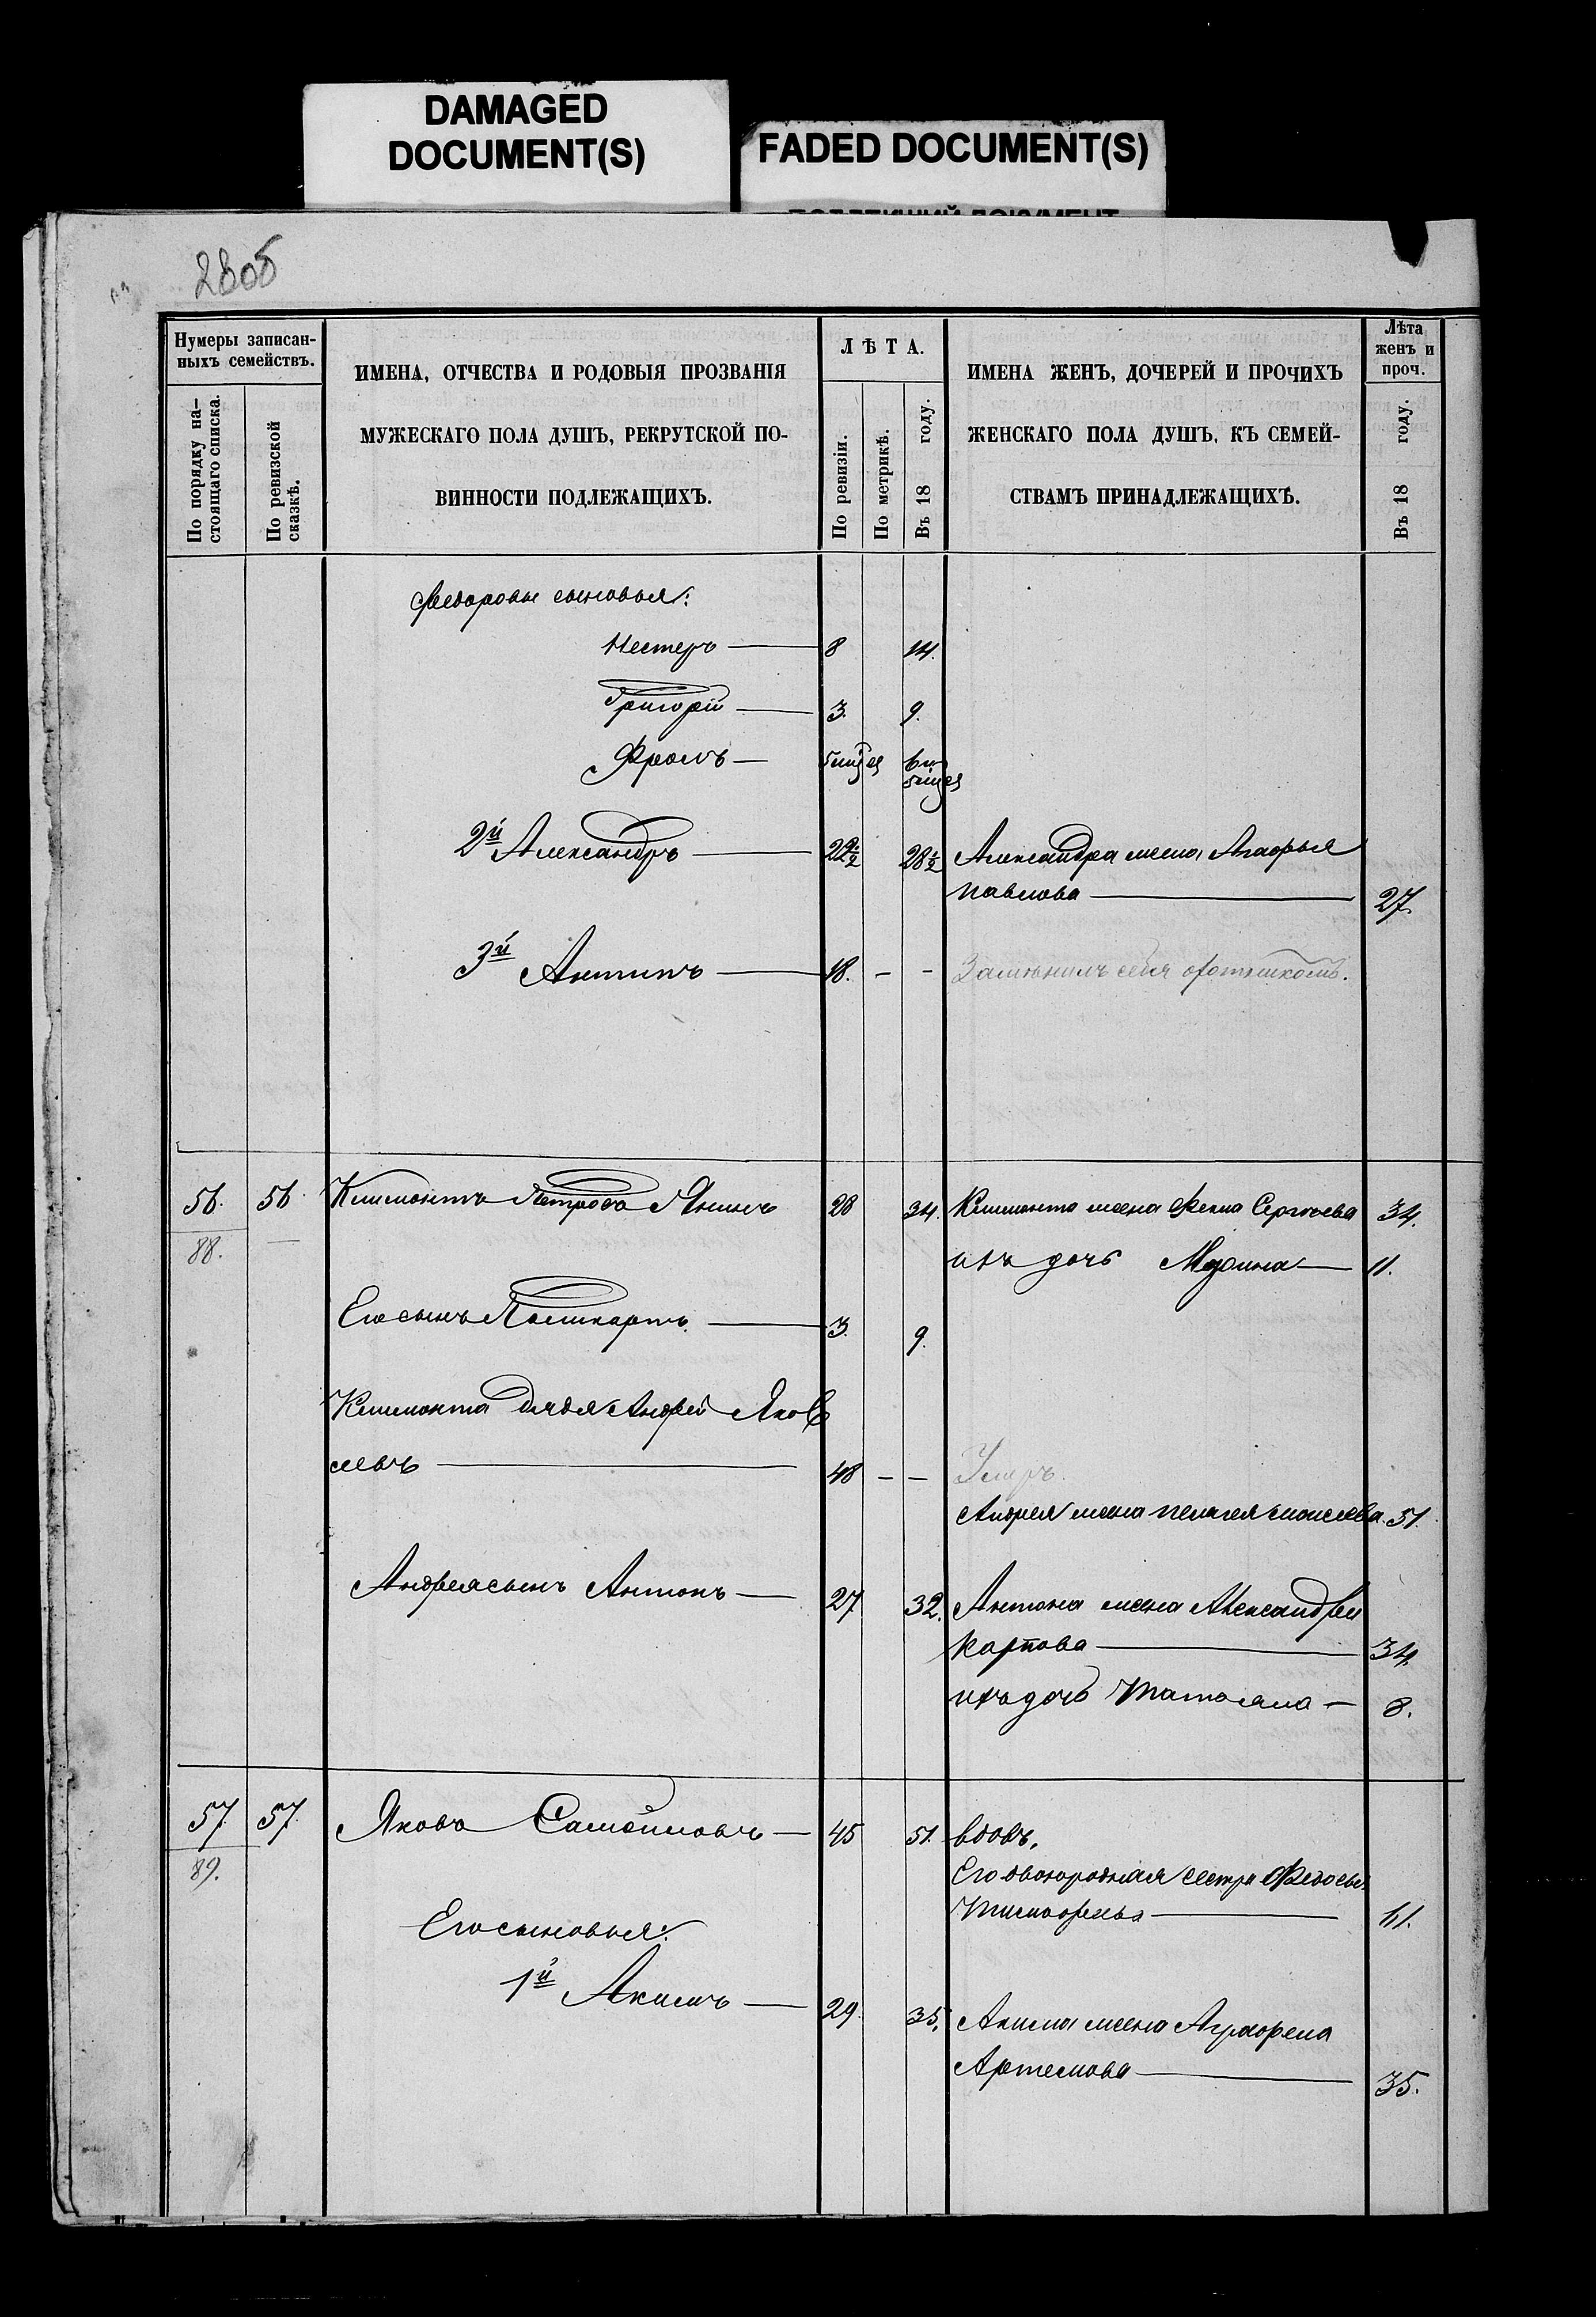 DAMAGED
DOCUMENT(S)
FADED DOCUMENT(S)
280б
Нумеры записан-
ныхъ семействъ.
По порядку на-
стоящаго списка.
По ревизской
сказкѣ.
ИМЕНА, ОТЧЕСТВА И РОДОВЫЯ ПРОЗВАНІЯ
МУЖЕСКАГО ПОЛА ДУШЪ, РЕКРУТСКОЙ ПО-
ВИННОСТИ ПОДЛЕЖАЩИХЪ.
ЛѢТА.
По ревизіи.
По метрикѣ.
Въ 18 году.
ИМЕНА ЖЕНЪ, ДОЧЕРЕЙ И ПРОЧИХЪ
ЖЕНСКАГО ПОЛА ДУШЪ, КЪ СЕМЕЙ-
СТВАМЪ ПРИНАДЛЕЖАЩИХЪ.
Лѣта
женъ и
проч.
Въ 18 году.
Федоровы сыновья:
Нестеръ — 8 14.
Григорій — 3. 9.
Фролъ —
2й Александръ — 22½ 28½ Александра жена Агафья
Павлова — 27.
3й Антипъ — 18. - - Замѣнилъ себя охотникомъ.
56. 56. Климонтъ Петровъ Янинъ 28 34. Климонта жена Фекла Сергѣева 34.
88.
ихъ дочь Марина — 11.
Его сынъ Поликарпъ — 3. 9.
Климонта дядя Андрей Яков
левъ — 48 - - Умеръ.
Андрея жена Пелагея Моисеева 51.
Андрея сынъ Антонъ — 27 32. Антона жена Александра
Карпова — 34.
ихъ дочь Татьяна — 8.
57. 57. Яковъ Самойловъ — 45 51. вдовъ.
89.
Его двоюродная сестра Федосья
Тимофеева —
Его сыновья:
1й Акимъ — 29. 35. Акима жена Аграфена
Артемова — 35.